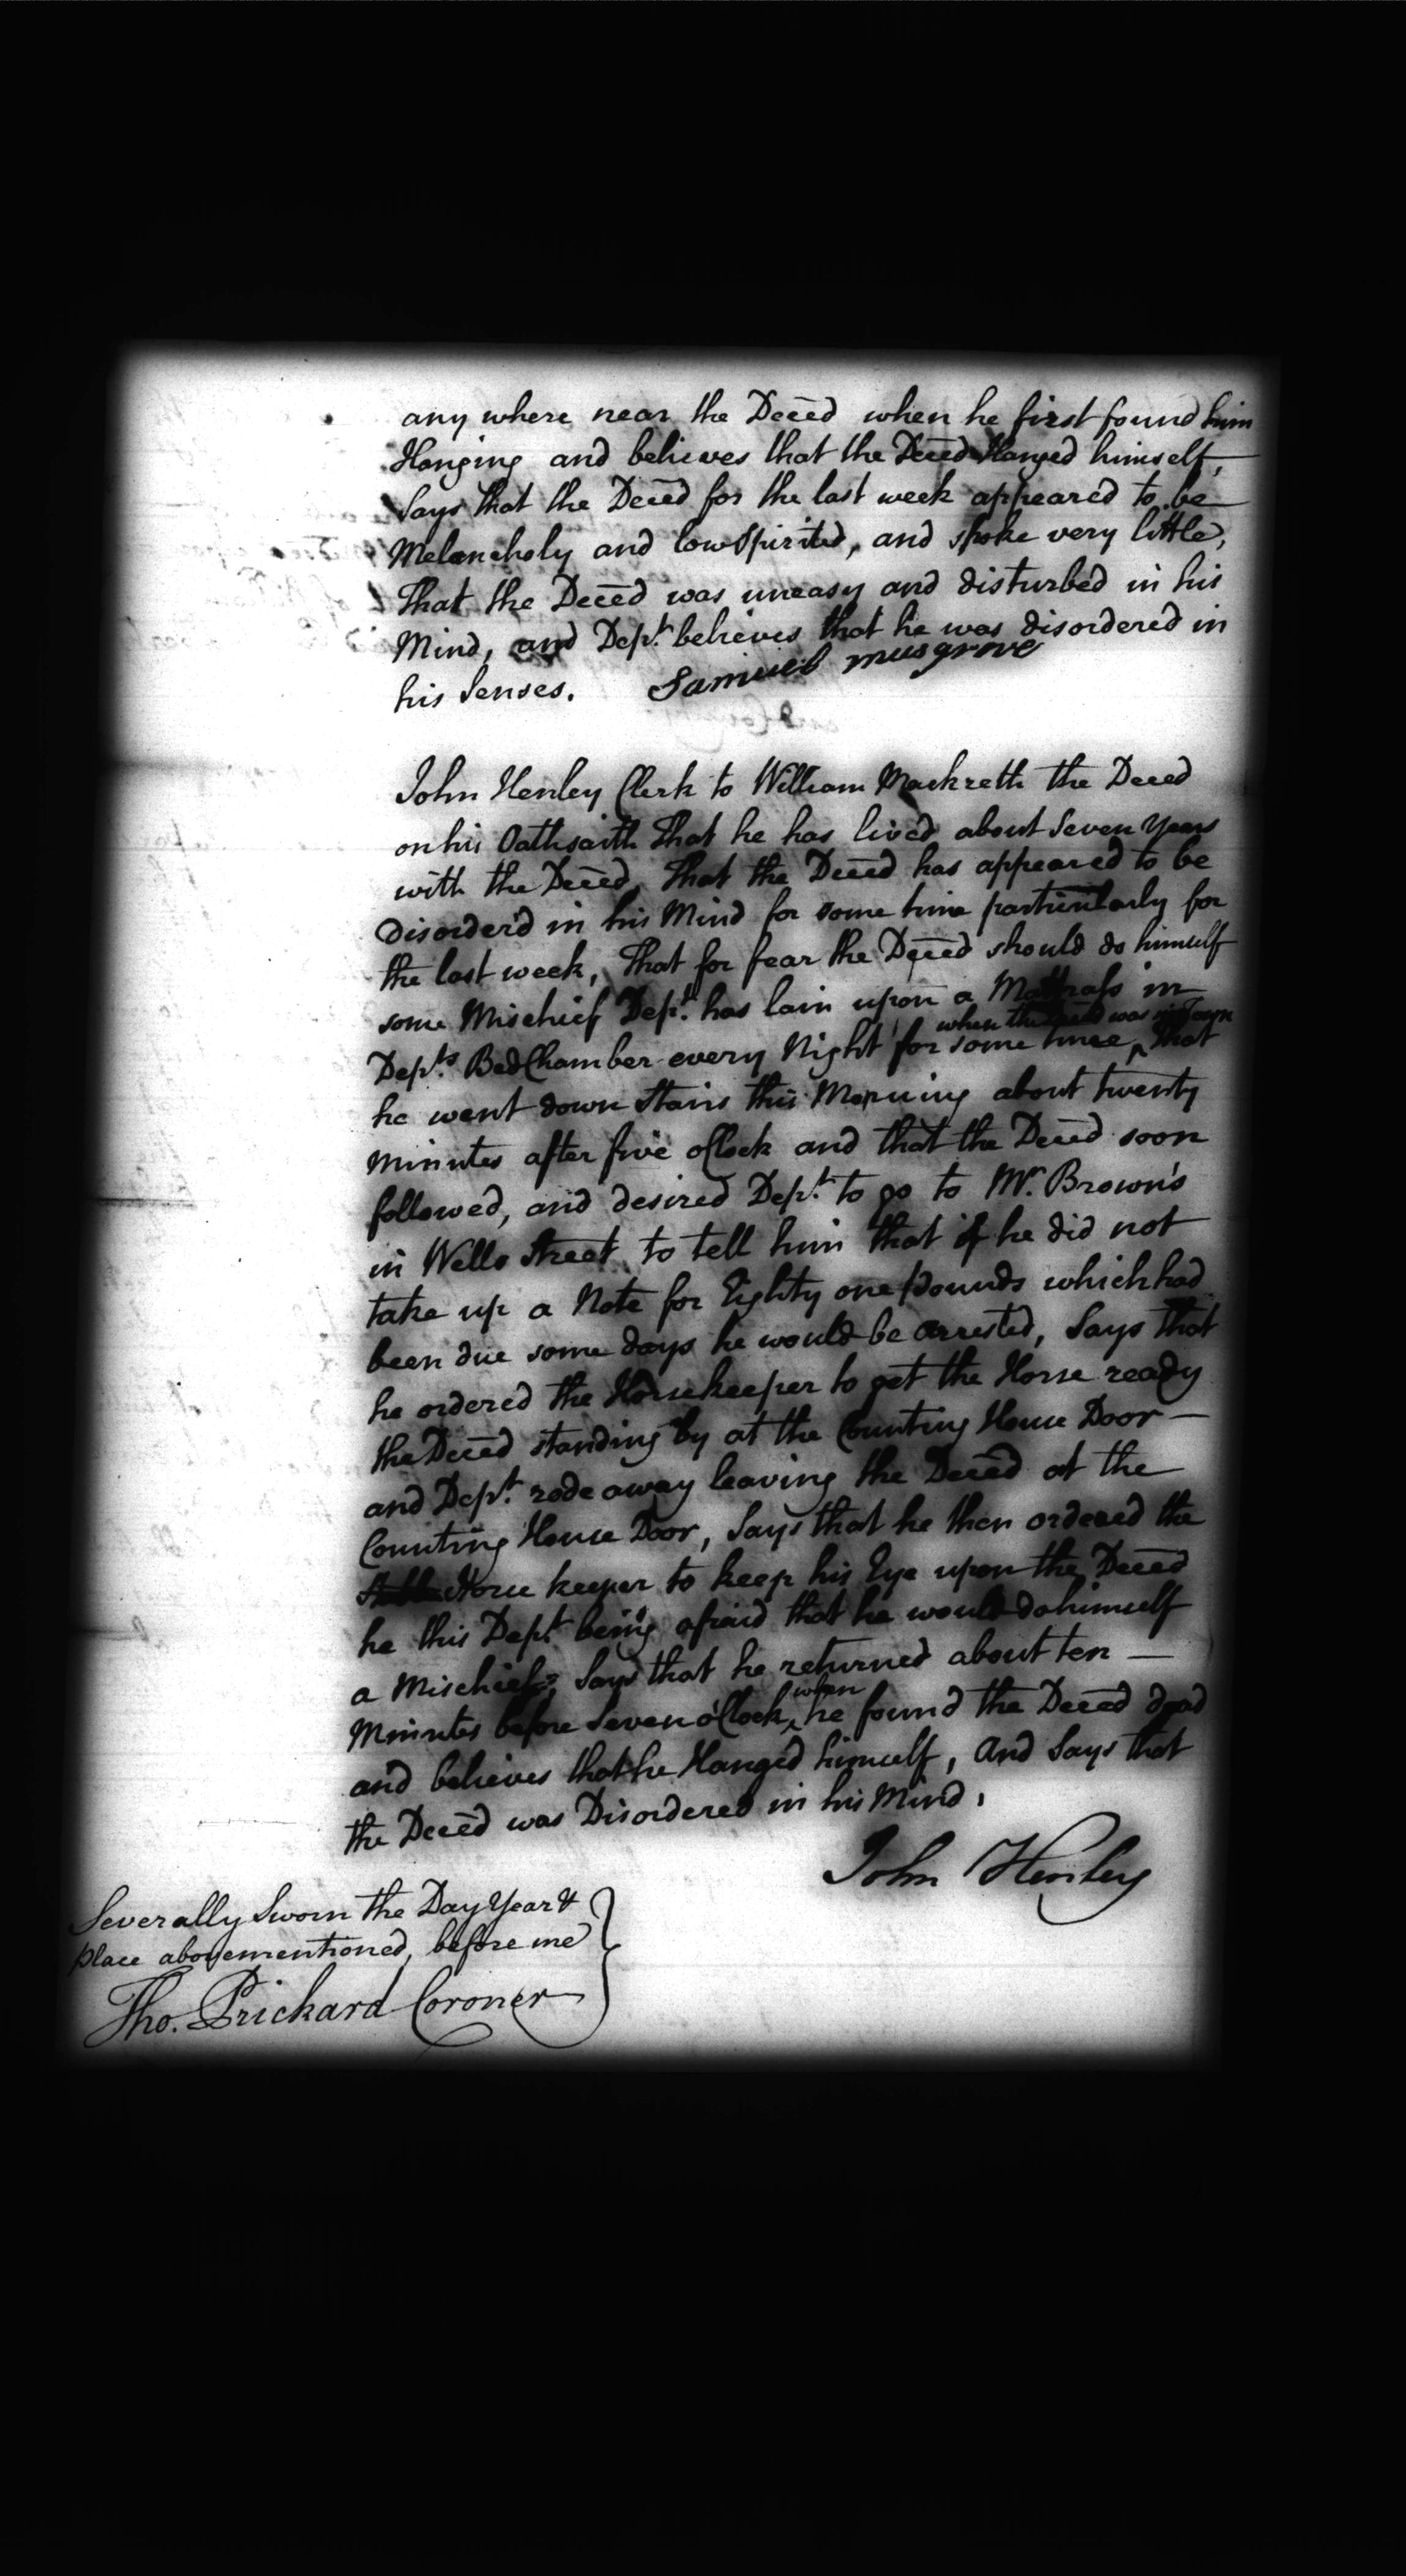 any where near the Deced when he first found him
Hanging and believes that the Deced Hanged himself,
Says that the Deced for the last week appeared to be
Melancholy and low Spirited, and spoke very little,
That the Deced was uneasy and disturbed in his
Mind, and Dept. believes that he was disordered in
his Senses. Samuel musgrove
John Henley Clerk to William Mackreth the Deced
on his Oath saith That he has lived about Seven Years
with the Deced, That the Deced has appeared to be
Disorder'd in his Mind for some time particularly for
the last week, That for fear the Deced should do himself
some Mischief Dept. has lain upon a Mattrass in
when the Deced was in Town
Depts. Bed Chamber every Night for some time, ‸ That
he went down Stairs this Morning about twenty
Minutes after five o'Clock and that the Deced soon
followed, and desired Dept. to go to Mr. Brown's
in Wells Street, to tell him that if he did not
take up a Note for Eighty one pounds which had
been due some days he would be arrested, Says that
he ordered the Horsekeeper to get the Horse ready
the Deced standing by at the Counting House Door —
and Dept. rode away leaving the Deced at the
Counting House Door, Says that he then ordered the
Horse keeper to keep his Eye upon the Deced
he this Dept. being afraid that he would do himself
a Mischief, Says that he returned about ten —
when
Minutes before Seven o'Clock, ‸ he found the Deced dead
and believes that he Hanged himself, And Says that
the Deced was Disordered in his Mind.
John Henley
Severally Sworn the Day Year &
place abovementioned, before me
Tho. Prickard Coroner